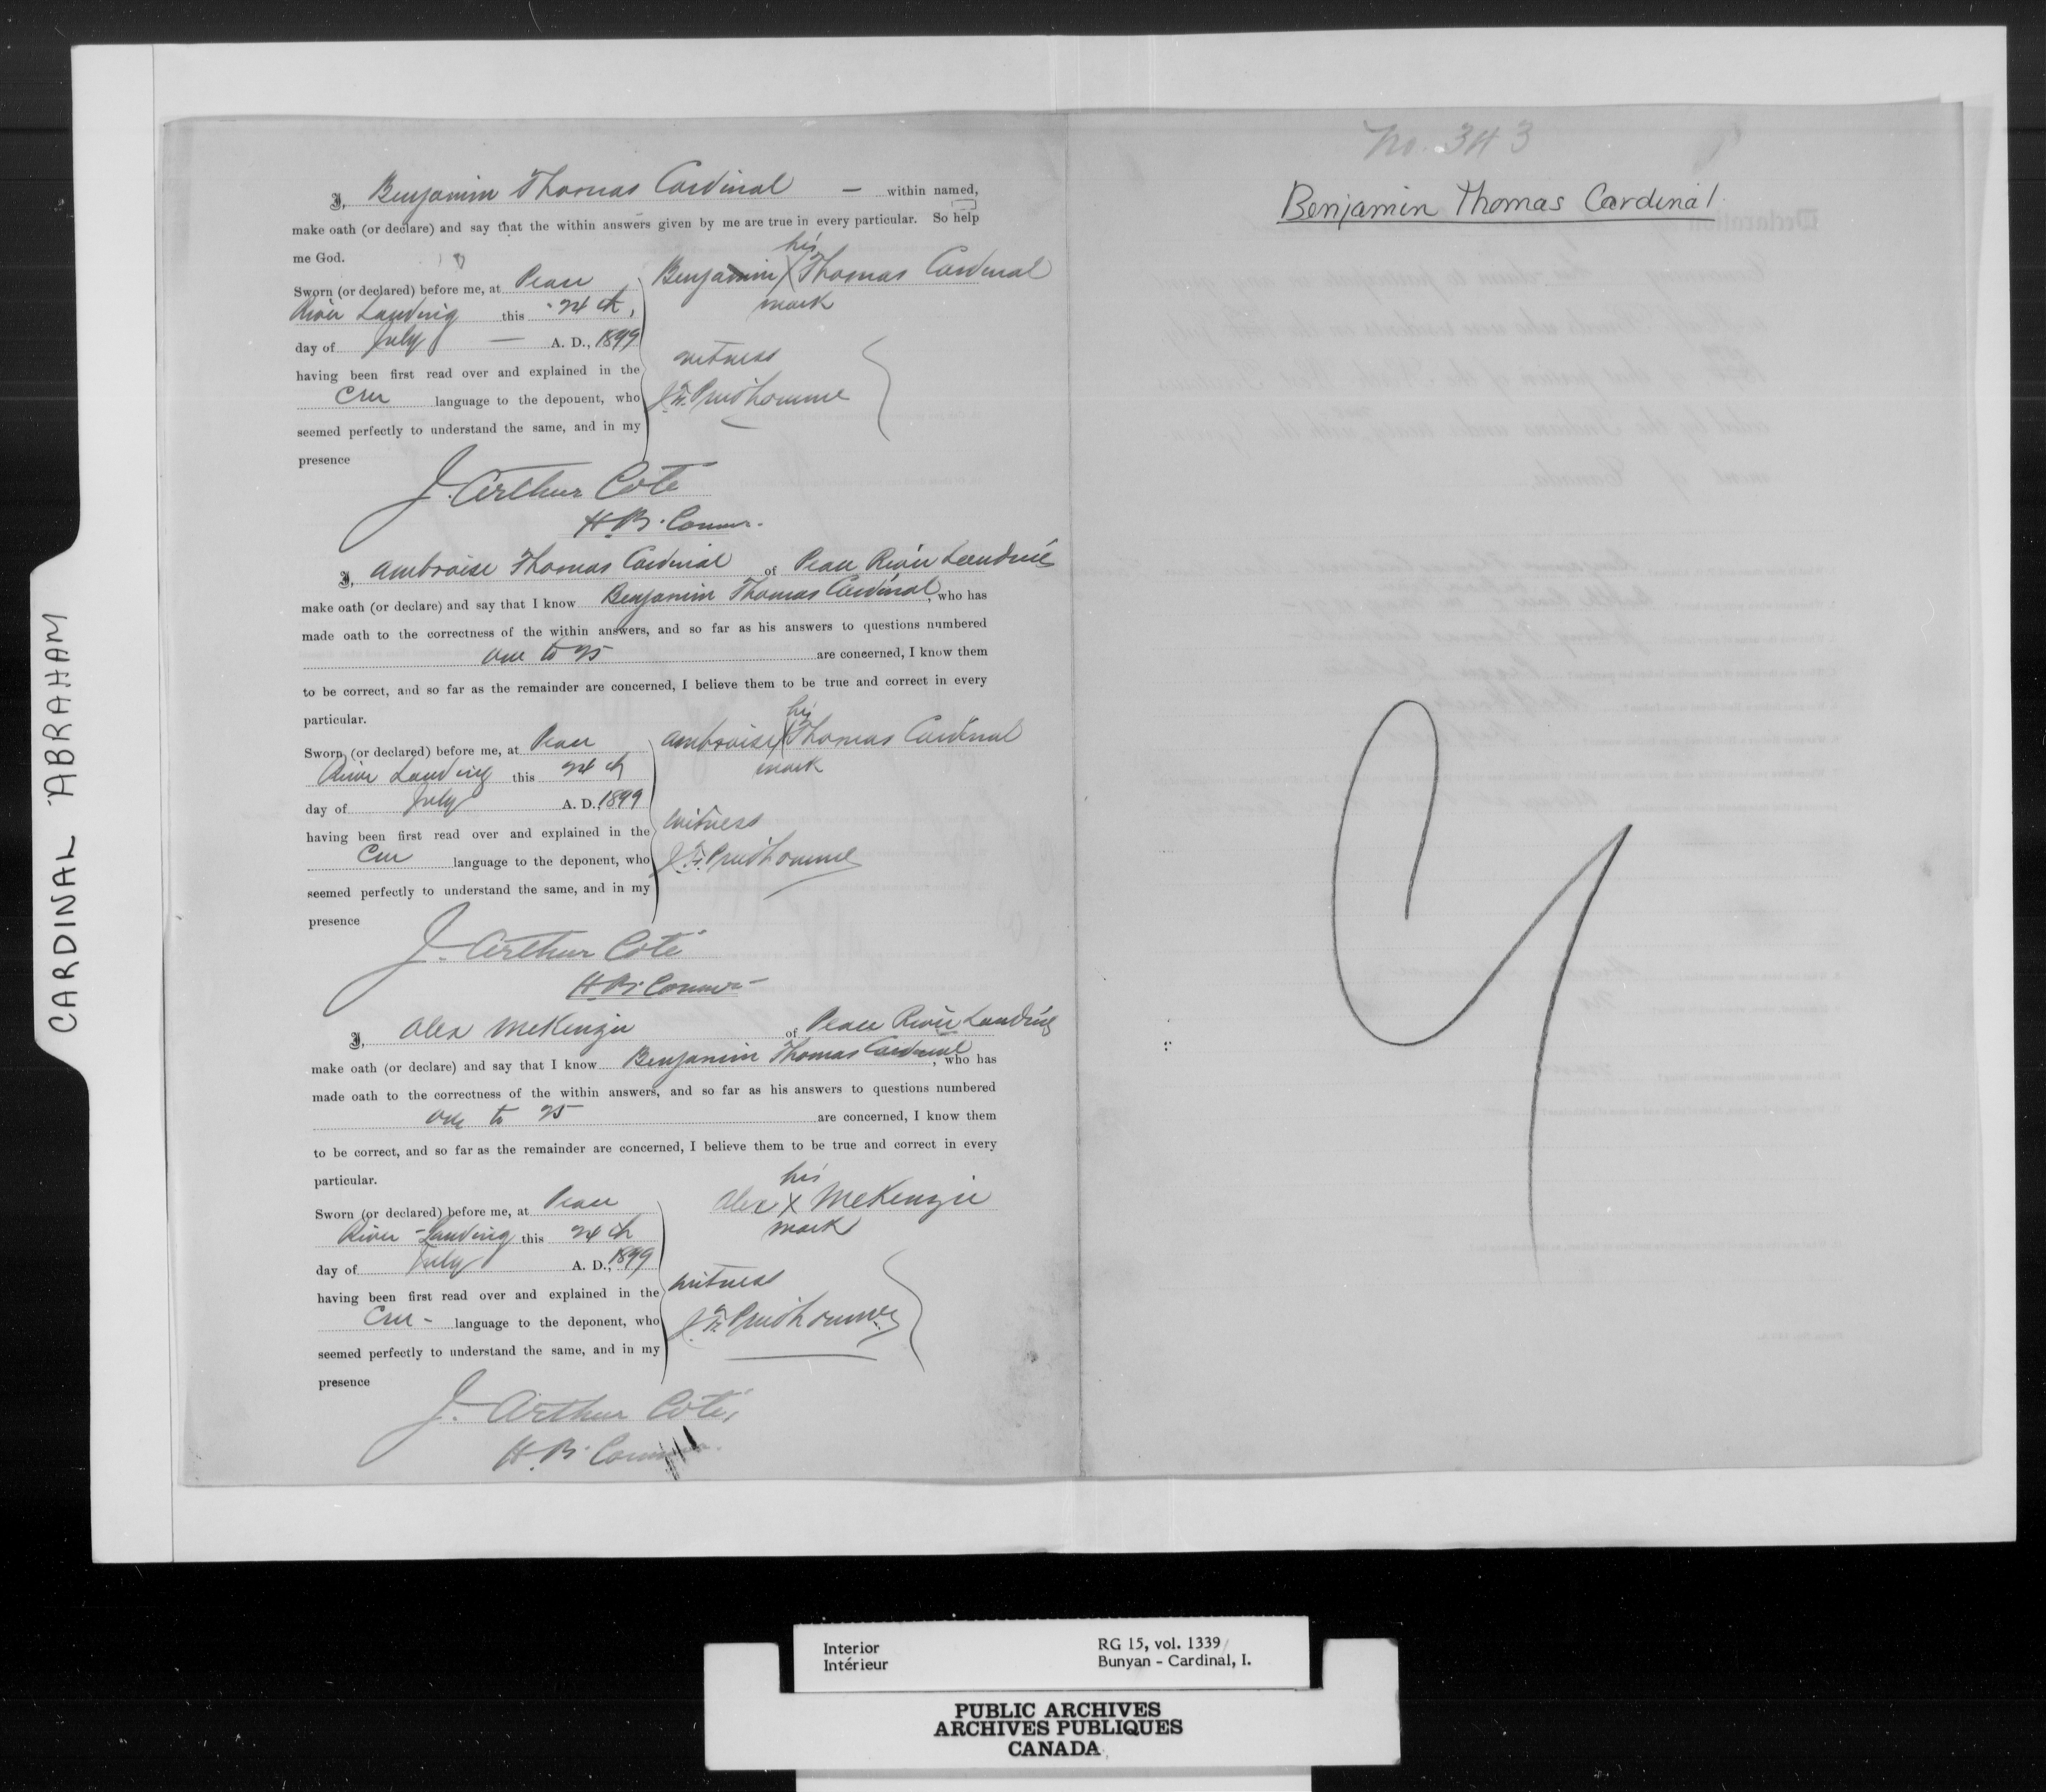 CARDINAL ABRAHAM
I, Benjamin Thomas Cardinal — within named,
make oath (or declare) and say that the within answers given by me are true in every particular. So help
me God.
Sworn (or declared) before me, at Peace
River Landing this 24th,
day of July — A. D., 1899
having been first read over and explained in the
Cree language to the deponent, who
seemed perfectly to understand the same, and in my
presence
his
Benjamin X Thomas Cardinal
mark
witness
J. F. Prudhomme
J. Arthur Coté
H. B. Comr.
I, Ambroise Thomas Cardinal of Peace River Landing
make oath (or declare) and say that I know Benjamin Thomas Cardinal, who has
made oath to the correctness of the within answers, and so far as his answers to questions numbered
one to 25 are concerned, I know them
to be correct, and so far as the remainder are concerned, I believe them to be true and correct in every
particular.
Sworn (or declared) before me, at Peace
River Landing this 24th
day of July A. D., 1899
having been first read over and explained in the
Cree language to the deponent, who
seemed perfectly to understand the same, and in my
presence
his
Ambroise X Thomas Cardinal
mark
witness
J. F. Prudhomme
J. Arthur Coté
H. B. Comr.
I, Alex McKenzie of Peace River Landing
make oath (or declare) and say that I know Benjamin Thomas Cardinal, who has
made oath to the correctness of the within answers, and so far as his answers to questions numbered
one to 25 are concerned, I know them
to be correct, and so far as the remainder are concerned, I believe them to be true and correct in every
particular.
Sworn (or declared) before me, at Peace
River-Landing this 24th
day of July A. D., 1899
having been first read over and explained in the
Cree - language to the deponent, who
seemed perfectly to understand the same, and in my
presence
his
Alex X McKenzie
mark
witness
J. F. Prudhomme
J. Arthur Coté,
H. B.
No. 343
Benjamin Thomas Cardinal
Interior
Intérieur
RG 15, vol. 1339
Bunyan - Cardinal, I.
PUBLIC ARCHIVES
ARCHIVES PUBLIQUES
CANADA